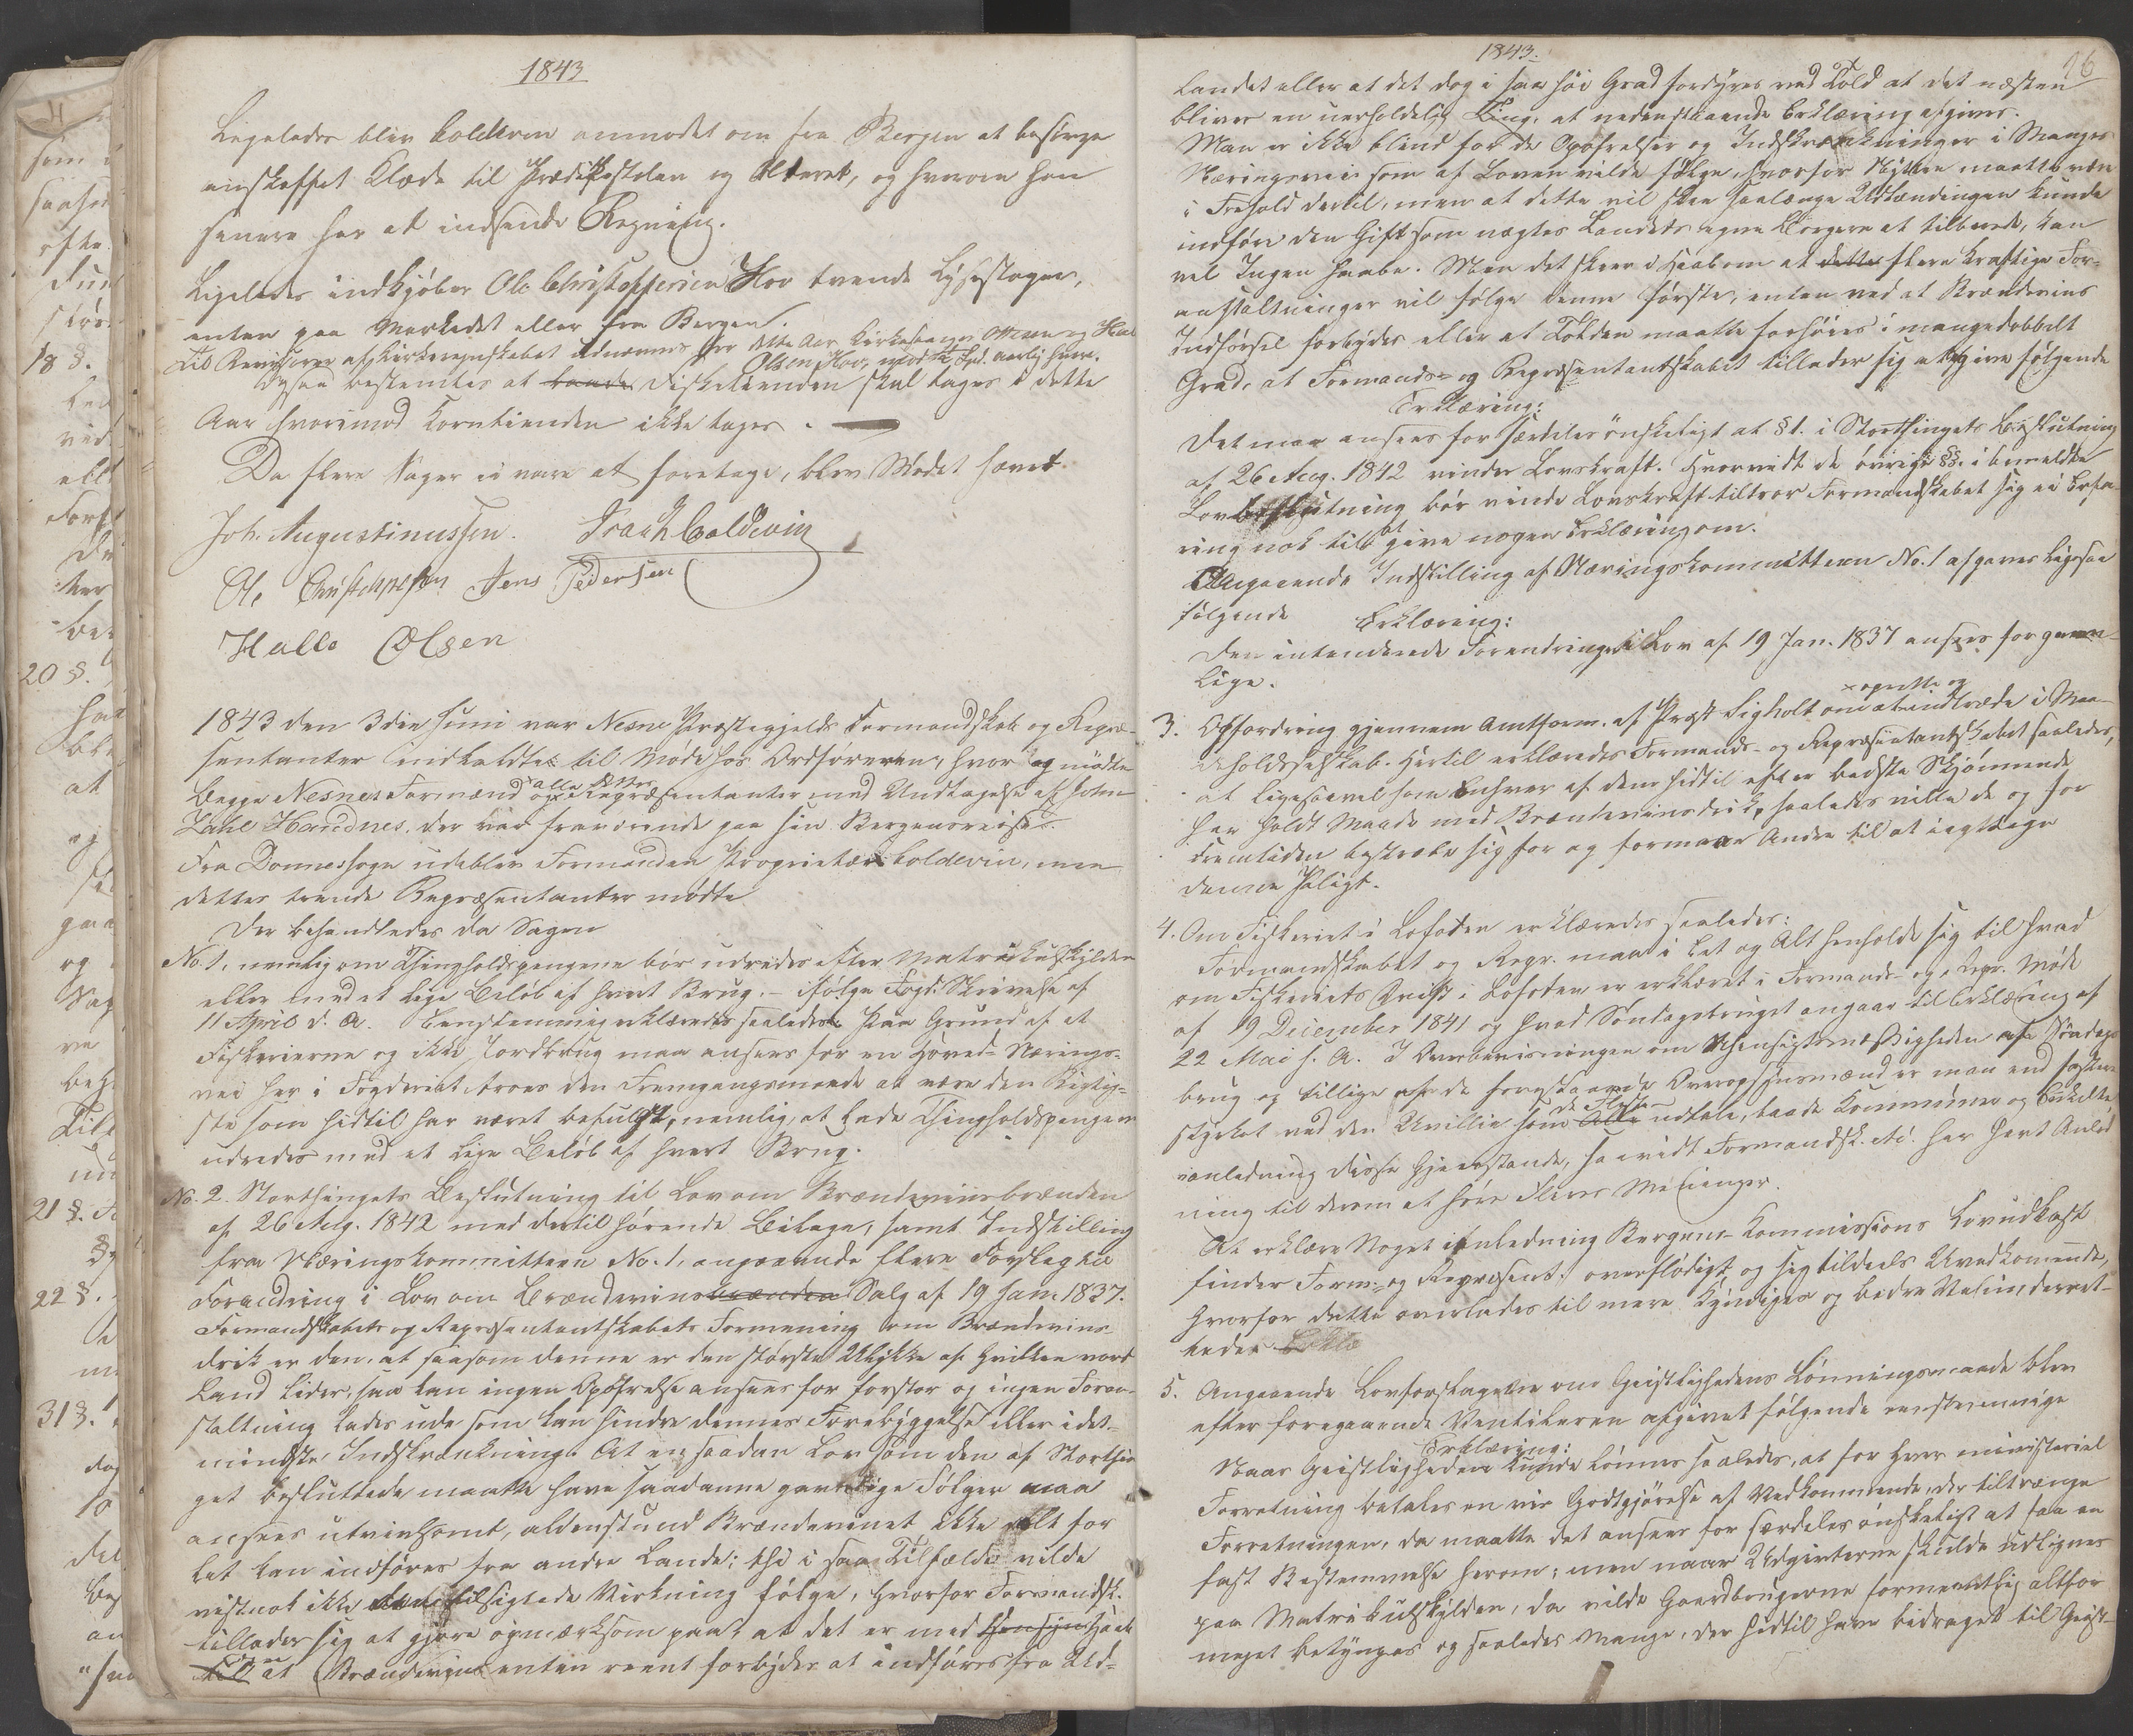 1843
Ligeledes blev Coldevin anmodet om fra Bergen at besörge
anskaffet Klæde til Prædikestolen og Alteret, og hvorom han
senere har at indsende Regning.
Ligeledes indkjöber Ole Christophersen Hov tvende Lysestager,
enten paa Markedet eller fra Bergen.
Til Revisorer af Kirkeregnskabet udnævnes for dette Aar Kirkesanger Ottesen og Hall
Olsen Hov, mod 2 Spd. aarlig hver.
Ogsaa bestemtes at Fisketienden skal tages i dette
Aar hvorimod Korntienden ikke tages.
Da flere Sager ei vare at foretage, blev Mödet hævet.
Joh. Augustinussen. Isach Coldevin
Ole Christophersen Jens Pedersen
Halle Olsen
1843 den 3die Juni var Nesne Præstegjelds Formandskab og Repræ-
sentanter indkaldte til Möde hos Ordföreren, hvor og mödte
begge Nesnes Formænd og alle dettes Repræsentanter med Undtagelse af John
Zahl Handnes, der var fraværende paa sin Bergensreise.
Fra Dønnes sogn udeblev Formanden Proprietær Coldevin, men
dettes tvende Repræsentanter mödte
Der behandledes da Sagen
No. 1, nemlig om Thingholdspengene bör udredes efter Matrikulskylden
eller med et lige Belöb af hvert Brug. – ifölge Fogd. Skrivelse af
11 April d. A. Eenstemmig erklæredes saaledes: Paa Grund af at
Fiskerierne og ikke Jordbrug maa ansees for en Hoved-Nærings-
vei her i Fogderiet troes den Fremgangsmaade at være den Rigtig-
ste som hidtil har været befulgt, nemlig, at lade Thingholdspengene
udredes med et lige Belöb af hvert Brug.
No. 2. Storthingets Beslutning til Lov om Brændeviinsbrænden
af 26 Aug. 1842 med dertil hörende Bilage, samt Indstilling
fra Næringskommitteen No. 1, angaaende flere Forslag til
Forandring i Lov om Brændeviins brænden Salg af 19 Jan. 1837.
Formandskabets og Repræsentantskabets Formening om Brændeviins-
drik er den, at saasom denne er den störste Ulykke af hvilken vort
Land lider, saa kan ingen Opofrelse ansees for forstor og ingen Foran-
staltning lades ude som kan hindre dennes Forebyggelse eller i det-
mindste Indskrænkning. At en saadan Lov som den af Storthin-
get besluttede maatte have saadanne gavnlige Fölger maa
ansees utvivlsomt, aldenstund Brændevinet ikke alt for
let kan indföres fra andre Lande; thi i saa Tilfælde vilde
vistnok ikke den tilsigtede Virkning fölge, hvorfor Formandsk.
tillader sig at gjöre opmærksom paa, at det er med Hensyn
til at Brændeviin enten reent forbydes at indföres fra Ud-
1843.
26
landet eller at det dog i saa höi Grad fordyres ved Told at det næsten
bliver en uerholdelig Ting, at nedenstaaende Erklæring afgives.
Man er ikke blind for de Opofrelser og Indskrænkninger i Manges
Næringsvei som af Loven vilde fölge, hvorfor Nytten maatte være
i Forhold dertil, men at dette vil skee saalænge Udlændingen kunde
indföre den Gift som nægtes Landets egne Borgere at tilberede, kan
vel Ingen haabe. Men det skeer i Haab om at dette flere kraftige For-
anstaltninger vil fölge denne förste, enten ved at Brændeviins
Indförsel forbydes eller at Tolden maatte forhöies i mangedobbelt
Grad, at Formands- og Repræsentantskabet tillader sig at give fölgende
Erklæring:
Det maa ansees for særdeles önskeligt at § 1. i Storthingets Beslutning
af 26 Aug. 1842 vinder Lovskraft. Hvorvidt de övrige §§. i bemeldte
Lovbeslutning bör vinde Lovskraft tiltroer Formandskabet sig ei Erfa-
ring nok til at give nogen Erklæring om.
Angaaende Indstilling af Næringskommitteen No. 1 afgaves ligesaa
fölgende Erklæring:
Den intenderede Forandringer i Lov af 19 Jan. 1837 ansees for gavn-
lige.
3. Opfordring gjennem Amtform. af Præst Sigholt om at oprette og indtræde i Maa-
deholdsselskab. Hertil erklæredes Formands- og Repræsentantskabet saaledes,
at ligesaavel som Enhver af dem hidtil efter bedste Skjönnende
har holdt Maade med Brændeviinsdrik, saaledes ville de og for
Fremtiden bestræbe sig for og formaae Andre til at iagttage
denne Pligt.
4. Om Fiskeriet i Lofoten erklæredes saaledes:
Formandskabet og Repr. maa i Eet og Alt henholde sig til hvad
om Fiskeriets Drift i Lofoten er erklæret i Formands- og Repr. Möde
af 19 December 1841 og hvad Söndagsbruget angaar til Erklæring af
22 Mai s. A. I Overbeviisningen om Uhensigtsmæssigheden af Söndags-
brug og tillige af de foreslaaede Overopsynsmænd er man end fastere
styrket ved den Uvillie som Alle de Fleste udtale, baade Kommuner og Enkelte
i anledning disse Gjenstande, saavidt Formandsk. etc. har havt Anled-
ning til derom at höre Fleres Meninger.
At erklære Noget i Anledning Bergens-Kommissions Lovudkast
finder Form- og Repræsent. overflödigt og sig tildeels Uvedkommende,
hvorfor dette overlades til mere Kyndiges og bedre Vedkommendes
5. Angaaende Lovforslagene om Geistlighedens Lönningsmaade blev
efter foregaaende Ventileren afgivet fölgende eenstemmige
Erklæring:
Naar Geistligheden kunde lönnes saaledes, at for hver ministeriel
Forretning betales en vis Godtgjörelse af Vedkommende, der tiltrænge
Forretningen, da maatte det ansees for særdeles önskeligt at faa en
fast Bestemmelse herom; men naar Udgivterne skulde udlignes
paa Matrikulskylden, da vilde Gaardbrugerne formeentlig altfor
meget betynges og saaledes Mange, der hidtil have bidraget til Geist-